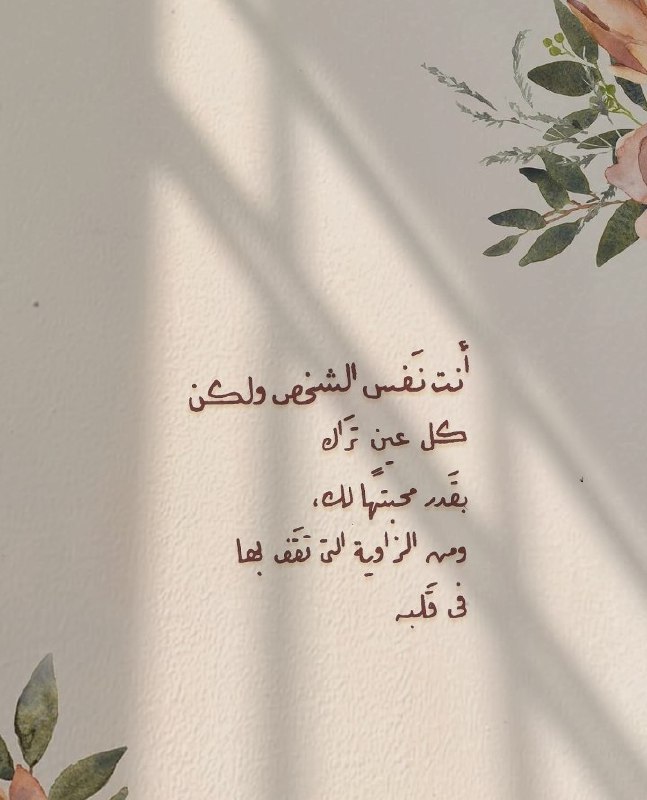 أنت نَفس الشخص ولكن
كل عين تَراك
بقَدر محبتهاً لك،
ومن الزاوية التي تَقَف بها
في قَلبه